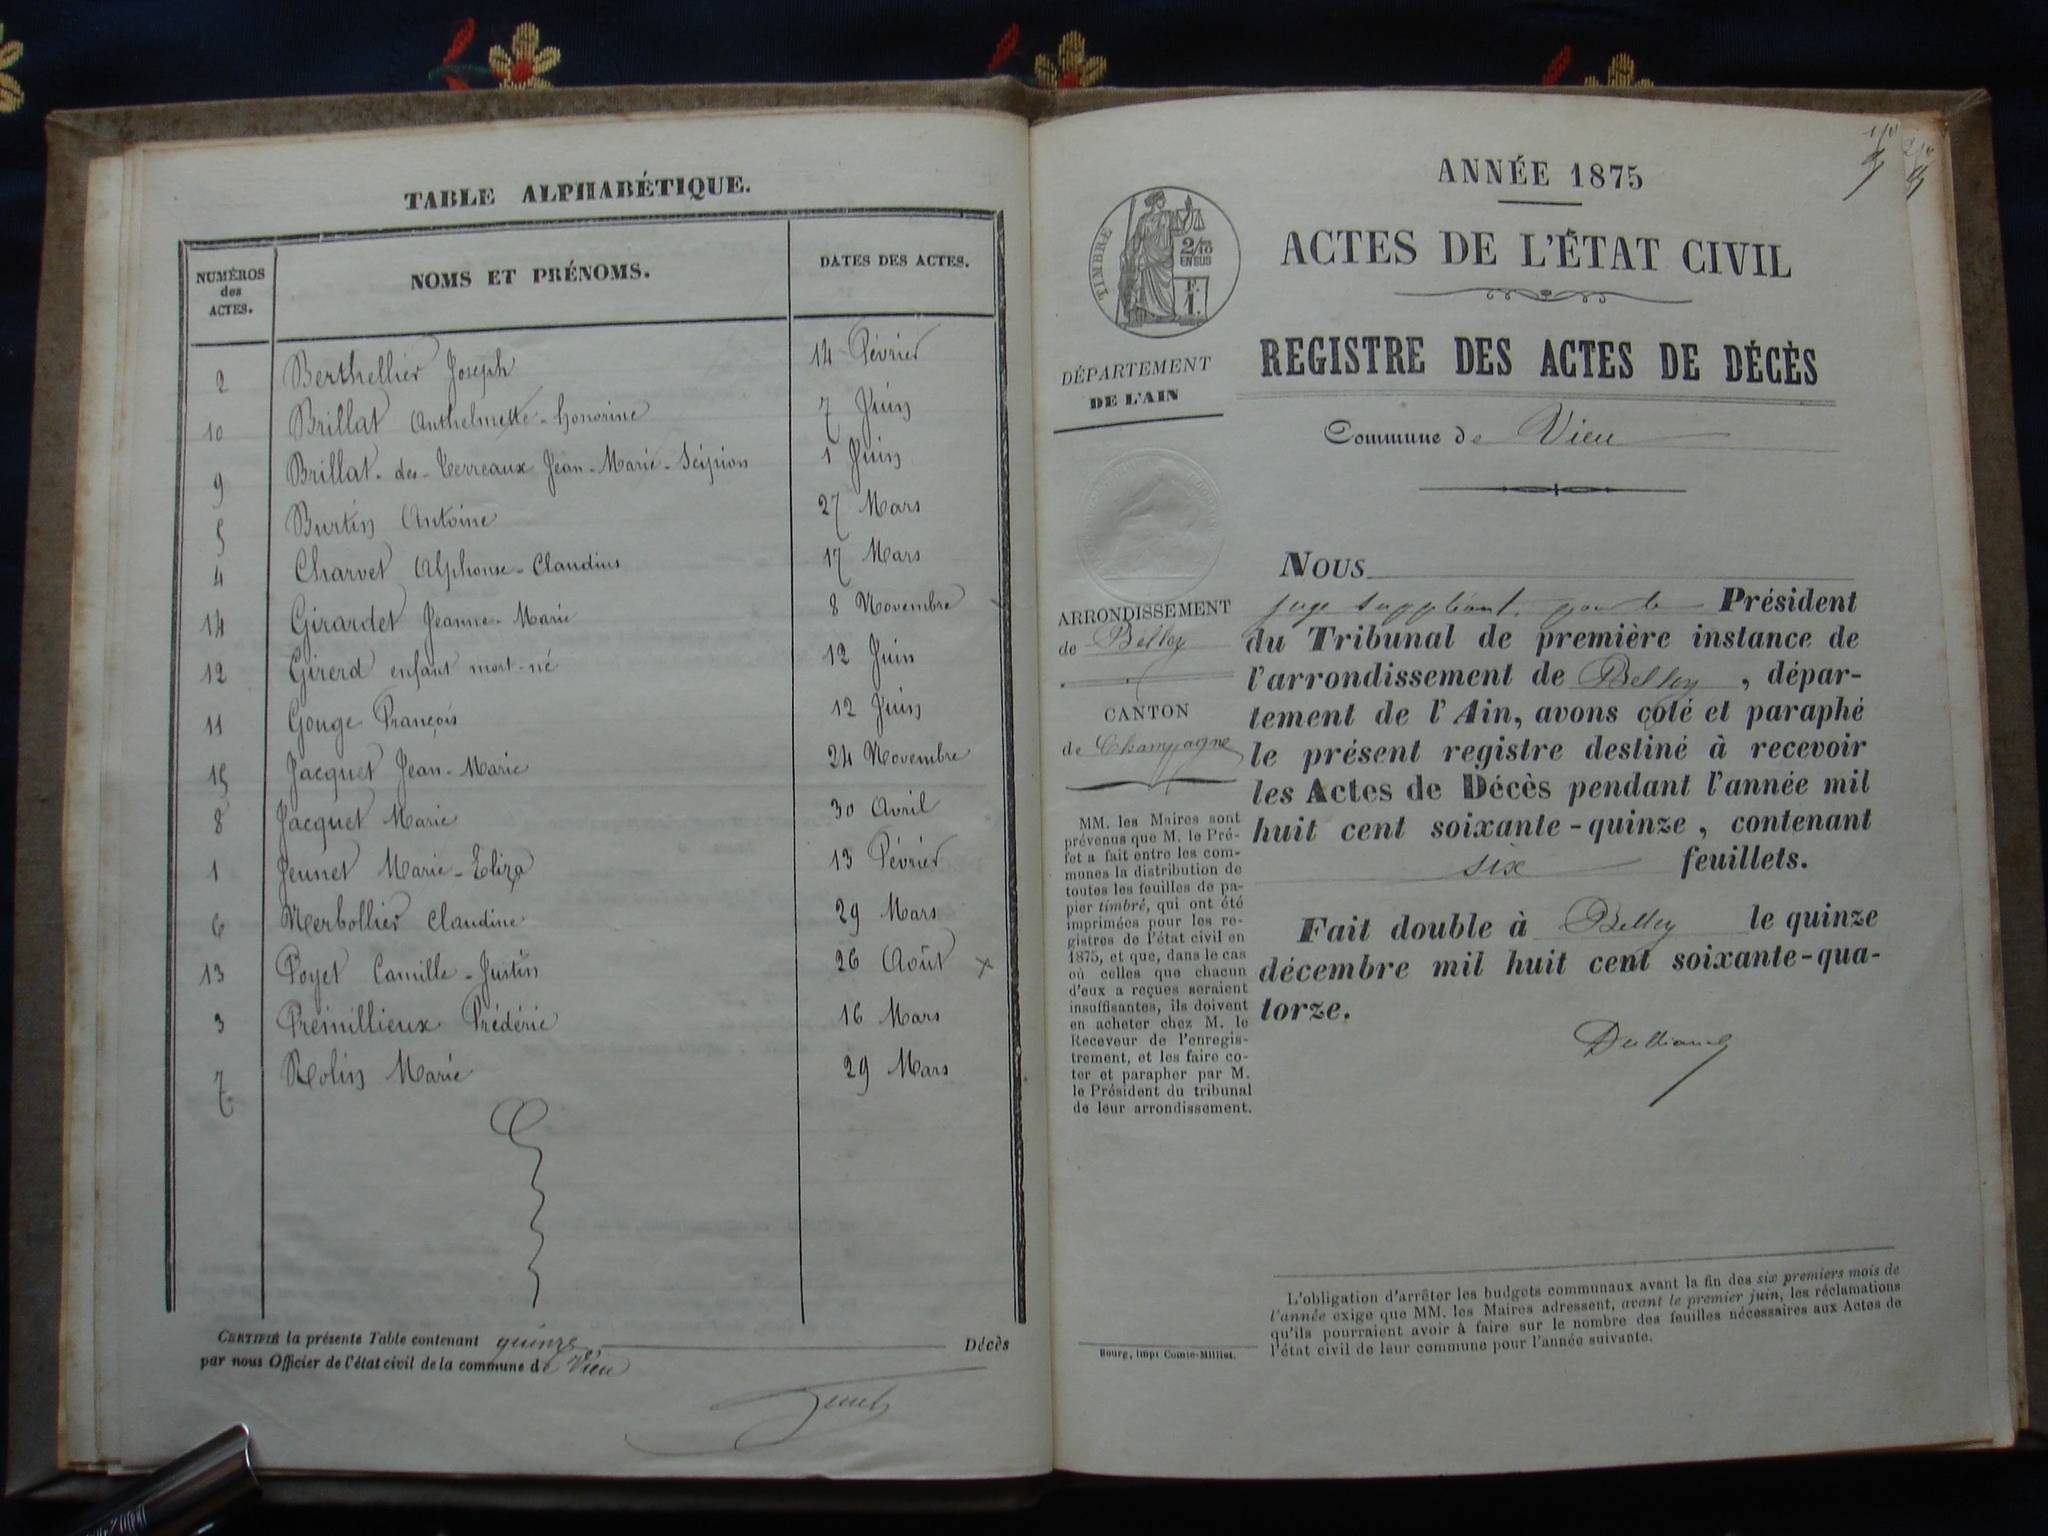 TABLE ALPHABÉTIQUE.
NUMÉROS des ACTES. NOMS ET PRÉNOMS. DATES DES ACTES.
2 Berthellier Joseph 14 Février
10 Brillat Anthelmette-honorine 7 Juin
9 Brillat-des-Terreaux Jean-Marie-Scipion 1 Juin
5 Burtin Antoine 27 Mars
4 Charvet Alphonse-Claudius 17 Mars
14 Girardet Jeanne-Marie 8 Novembre
12 Girerd enfant mort-né 12 Juin
11 Gouge François 12 Juin
15 Jacquet Jean-Marie 24 Novembre
8 Jacquet Marie 30 Avril
1 Jeunet Marie-Eliza 13 Février
6 Merbollier Claudine 29 Mars
13 Poyet Camille-Justin 26 Août x
3 Preimillieux Frédéric 16 Mars
7 Rolin Marie 29 Mars
CERTIFIÉ la présente Table contenant quinze Décès
par nous Officier de l'état civil de la commune de Vieu
ANNÉE 1875
ACTES DE L'ÉTAT CIVIL
TIMBRE
2/10
EN SUS
F.
1.
REGISTRE DES ACTES DE DÉCÈS
DÉPARTEMENT
DE L'AIN
Commune de Vieu
ARRONDISSEMENT
de Belley
CANTON
de Champagne
MM. les Maires sont
prévenus que M. le Pré-
fet a fait entre les com-
munes la distribution de
toutes les feuilles de pa-
pier timbré, qui ont été
imprimées pour les re-
gistres de l'état civil en
1875, et que, dans le cas
où celles que chacun
d'eux a reçues seraient
insuffisantes, ils doivent
en acheter chez M. le
Receveur de l'enregis-
trement, et les faire co-
ter et parapher par M.
le Président du tribunal
de leur arrondissement.
NOUS
juge suppléant, pour le Président
du Tribunal de première instance de
l'arrondissement de Belley, dépar-
tement de l'Ain, avons coté et paraphé
le présent registre destiné à recevoir
les Actes de Décès pendant l'année mil
huit cent soixante-quinze, contenant
six feuillets.
Fait double à Belley le quinze
décembre mil huit cent soixante-qua-
torze.
L'obligation d'arrêter les budgets communaux avant la fin des six premiers mois de
l'année exige que MM. les Maires adressent, avant le premier juin, les réclamations
qu'ils pourraient avoir à faire sur le nombre des feuilles nécessaires aux Actes de
l'état civil de leur commune pour l'année suivante.
Bourg, impr Comte-Milliet.